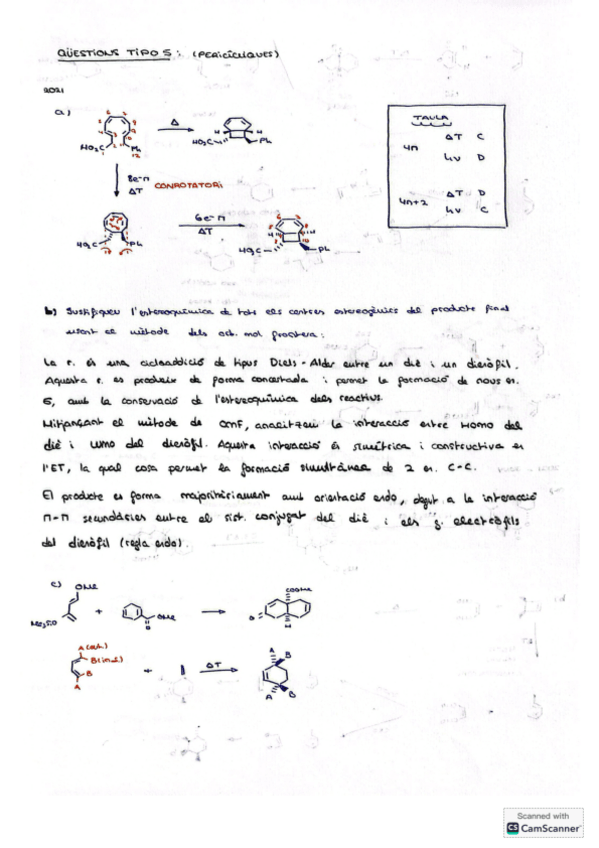 QÜESTIONS TIPO 5: (PERICÍCLIQUES)
2021
a)
TAULA
4n ΔT C
hν D
4n+2 ΔT D
hν C
HO₂C Ph
Δ
HO₂C Ph
8e-π
ΔT
CONROTATORI
6e-π
ΔT
HO₂C Ph
HO₂C Ph
b) Justifiqueu l'estereoquímica de tots els centres estereogènics del producte final
usant el mètode dels orb. mol. frontera:
La r. és una cicloaddició de tipus Diels-Alder entre un diè i un dienòfil.
Aquesta r. es produeix de forma concertada i permet la formació de nous en.
σ, amb la conservació de l'estereoquímica dels reactius.
Mitjançant el mètode de OMF, analitzem la interacció entre HOMO del
diè i LUMO del dienòfil. Aquesta interacció és simètrica i constructiva en
l'ET, la qual cosa permet la formació simultània de 2 en. C-C.
El producte es forma majoritàriament amb orientació endo, degut a la interacció
π-π secundàries entre el sist. conjugat del diè i els g. electròfils
del dienòfil (regla endo).
c) OMe
Me₃SiO
+
OMe
O
COOMe
O
H
A
B
B
A
+
ΔT
A B
A B
Scanned with
CS CamScanner